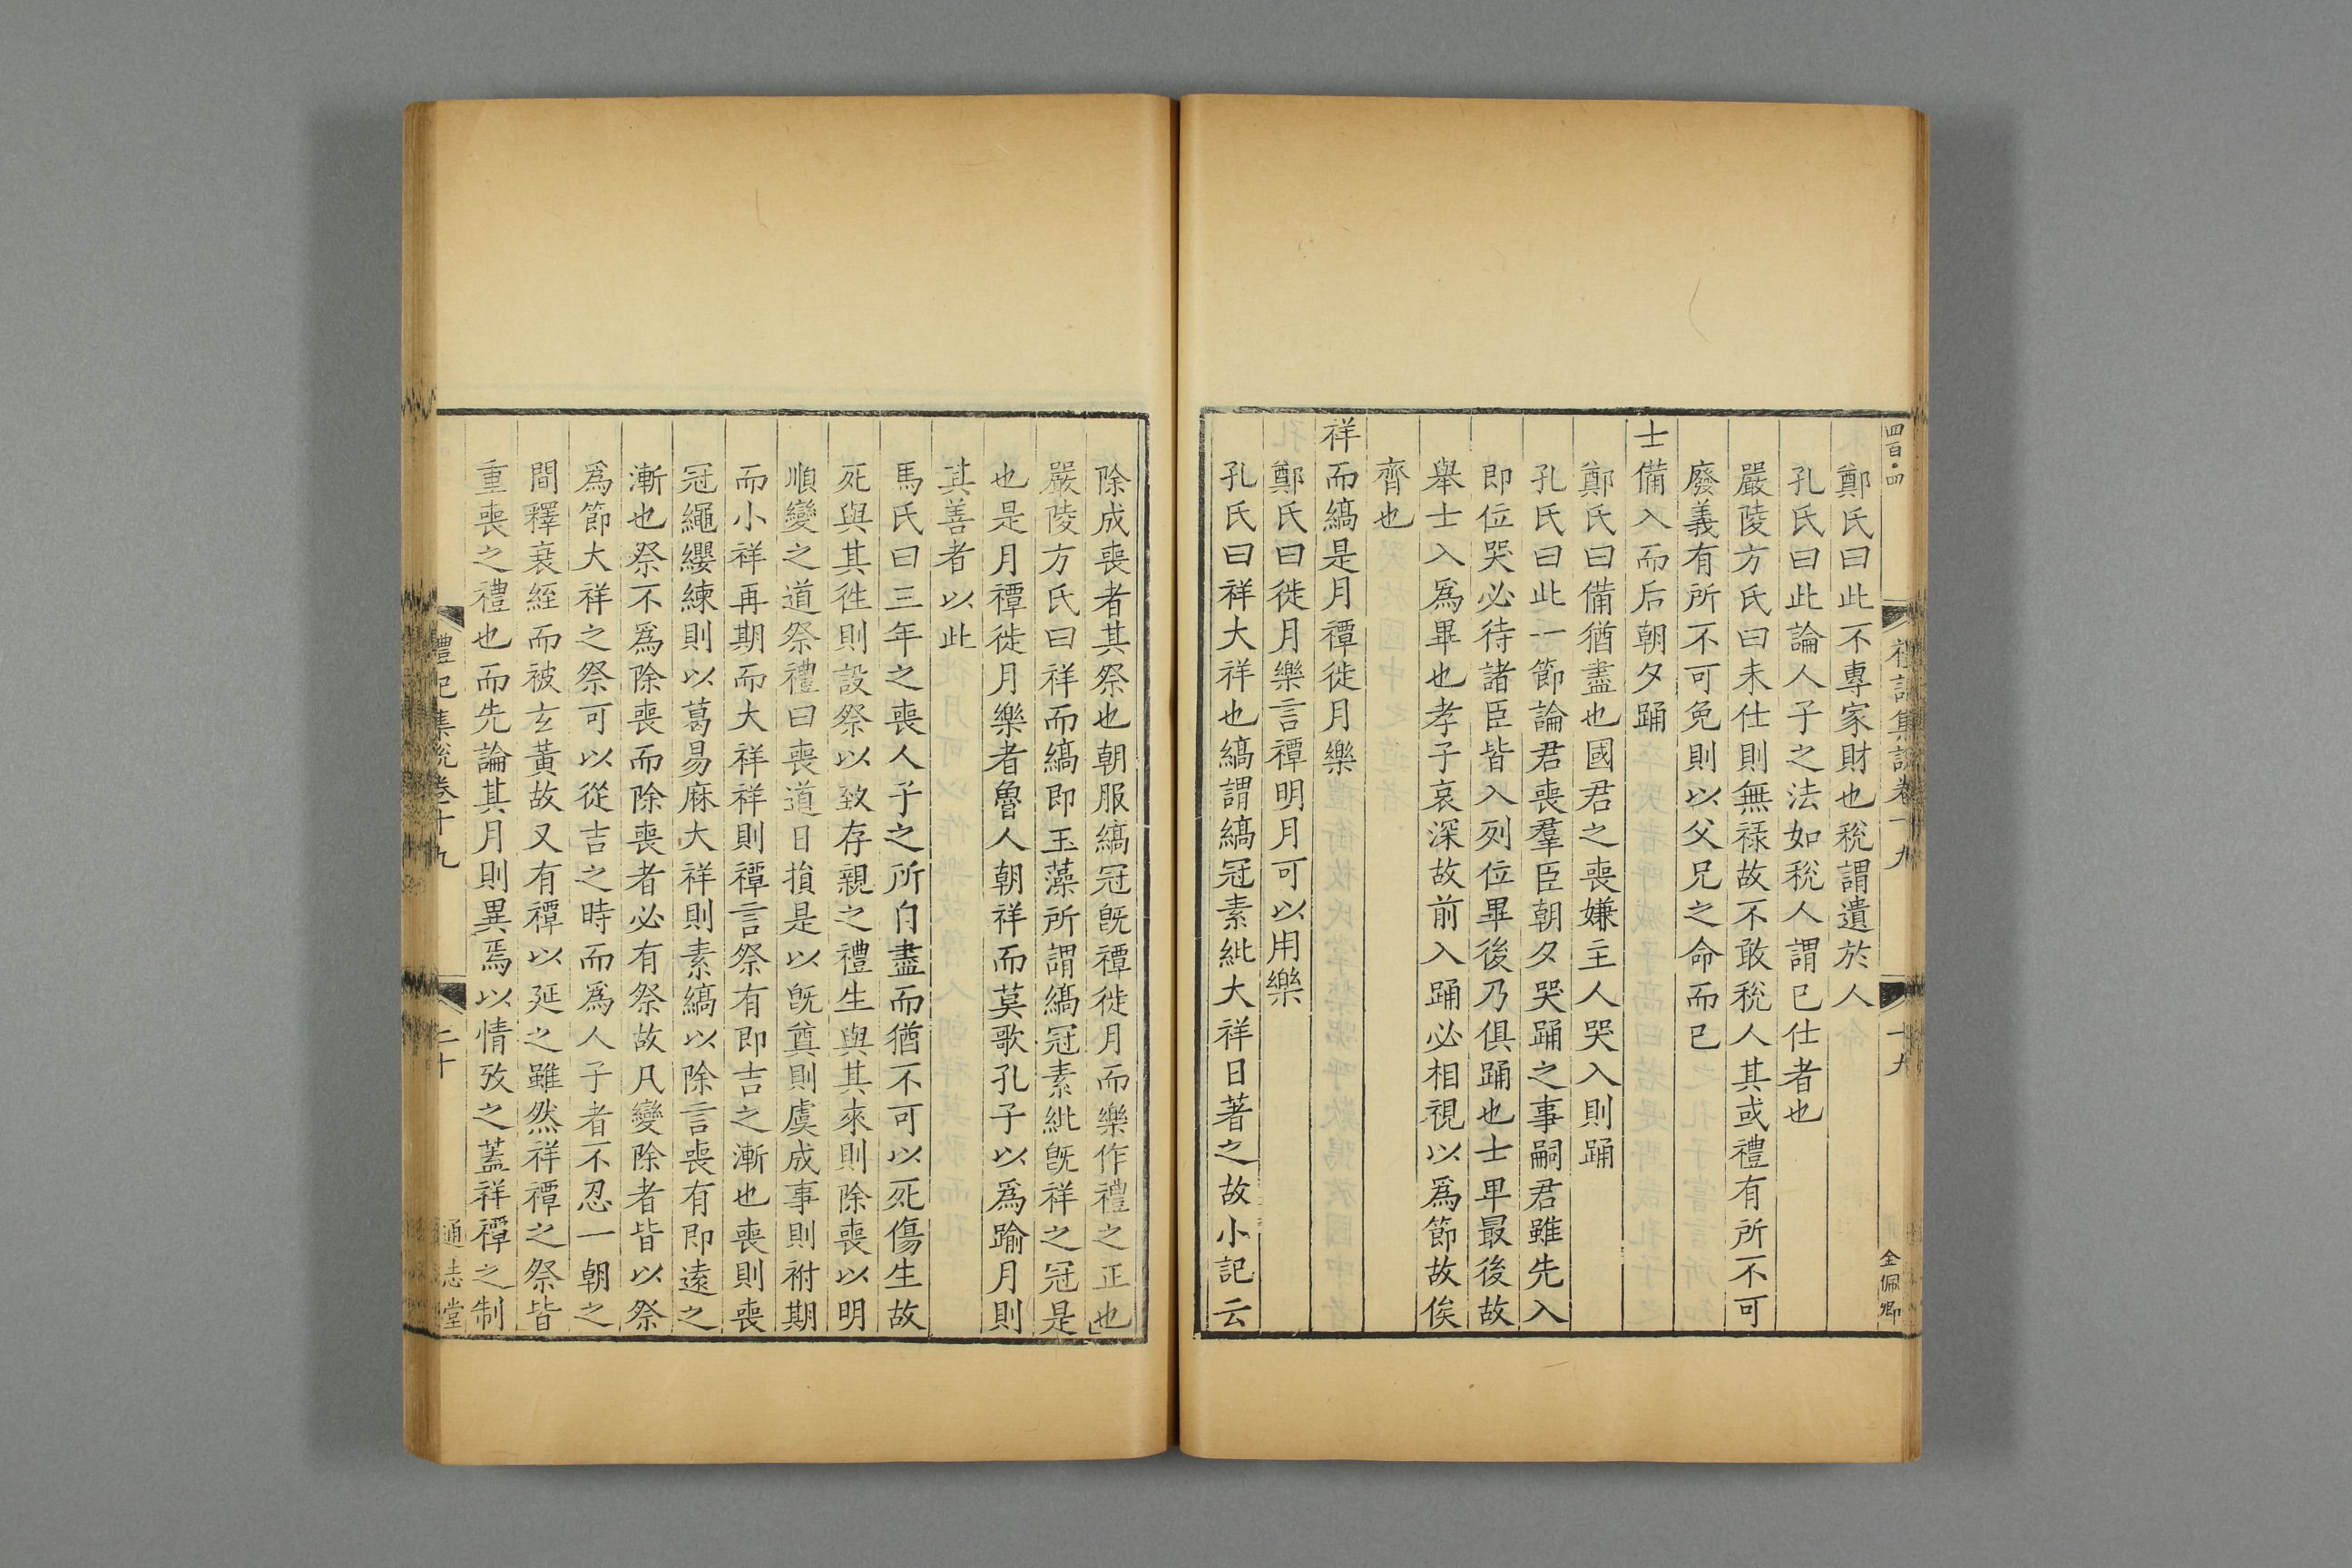 四百四
禮記集說卷十九
十九
金佩卿
鄭氏曰此不專家財也稅謂遺於人
孔氏曰此論人子之法如稅人謂已仕者也
嚴陵方氏曰未仕則無祿故不敢稅人其或禮有所不可
廢義有所不可免則以父兄之命而已
士備入而后朝夕踊
鄭氏曰備猶盡也國君之喪嫌主人哭入則踊
孔氏曰此一節論君喪羣臣朝夕哭踊之事嗣君雖先入
即位哭必待諸臣皆入列位畢後乃俱踊也士畢最後故
舉士入爲畢也孝子哀深故前入踊必相視以爲節故俟
齊也
祥而縞是月禫徙月樂
鄭氏曰徙月樂言禫明月可以用樂
孔氏曰祥大祥也縞謂縞冠素紕大祥日著之故小記云
除成喪者其祭也朝服縞冠旣禫徙月而樂作禮之正也
嚴陵方氏曰祥而縞即玉藻所謂縞冠素紕旣祥之冠是
也是月禫徙月樂者魯人朝祥而莫歌孔子以爲踰月則
其善者以此
馬氏曰三年之喪人子之所自盡而猶不可以死傷生故
死與其徃則設祭以致存親之禮生與其來則除喪以明
順變之道祭禮曰喪道日損是以旣奠則虞成事則祔期
而小祥再期而大祥祥則禫言祭有即吉之漸也喪則喪
冠繩纓練則以葛易麻大祥則素縞以除言喪有即遠之
漸也祭不爲除喪而除喪者必有祭故凡變除者皆以祭
爲節大祥之祭可以從吉之時而爲人子者不忍一朝之
間釋衰絰而被玄黃故又有禫以延之雖然祥禫之祭皆
重喪之禮也而先論其月則異焉以情攷之蓋祥禫之制
禮記集說卷十九
二十
通志堂